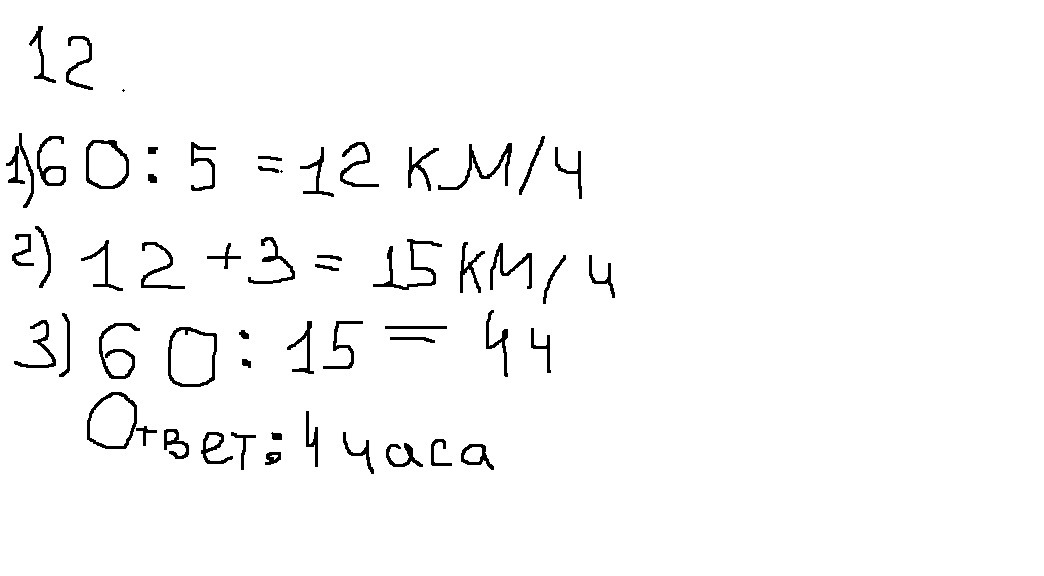 12.
1) 60 : 5 = 12 км/ч
2) 12 + 3 = 15 км/ч
3) 60 : 15 = 4 ч
Ответ: 4 часа